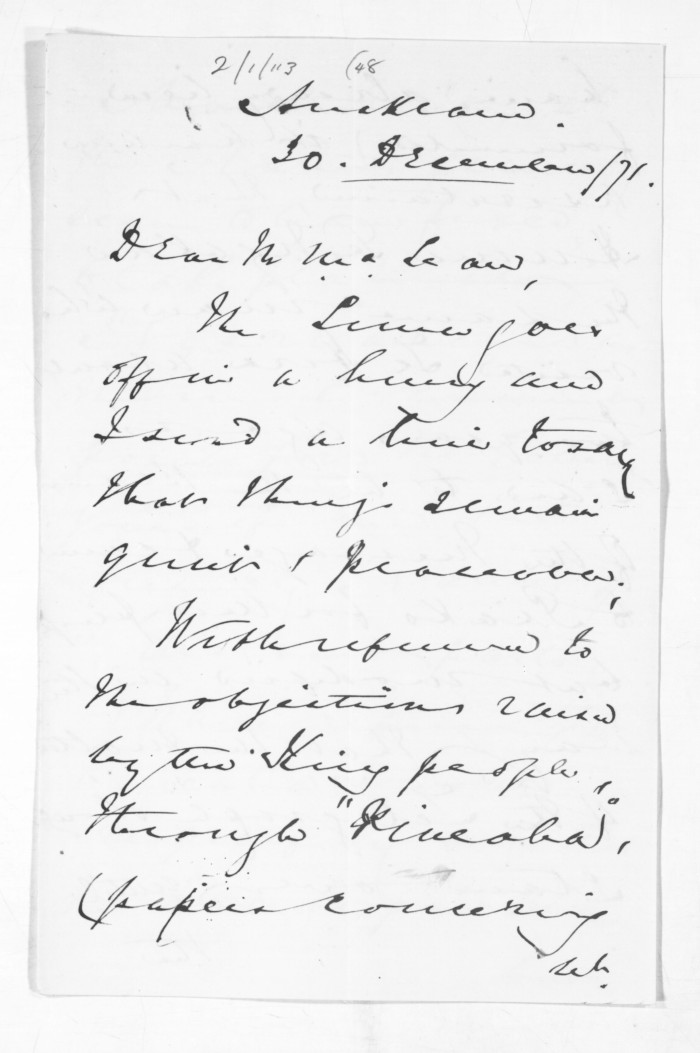 2/1/113 (48
Auckland.
30. December/71.
Dear Mr McLean,
The Luna goes
off in a hurry and
I send a line to say
that things remain
quiet & peaceable;
With reference to
the objections raised
by the "King people,"
through "
(papers concerning